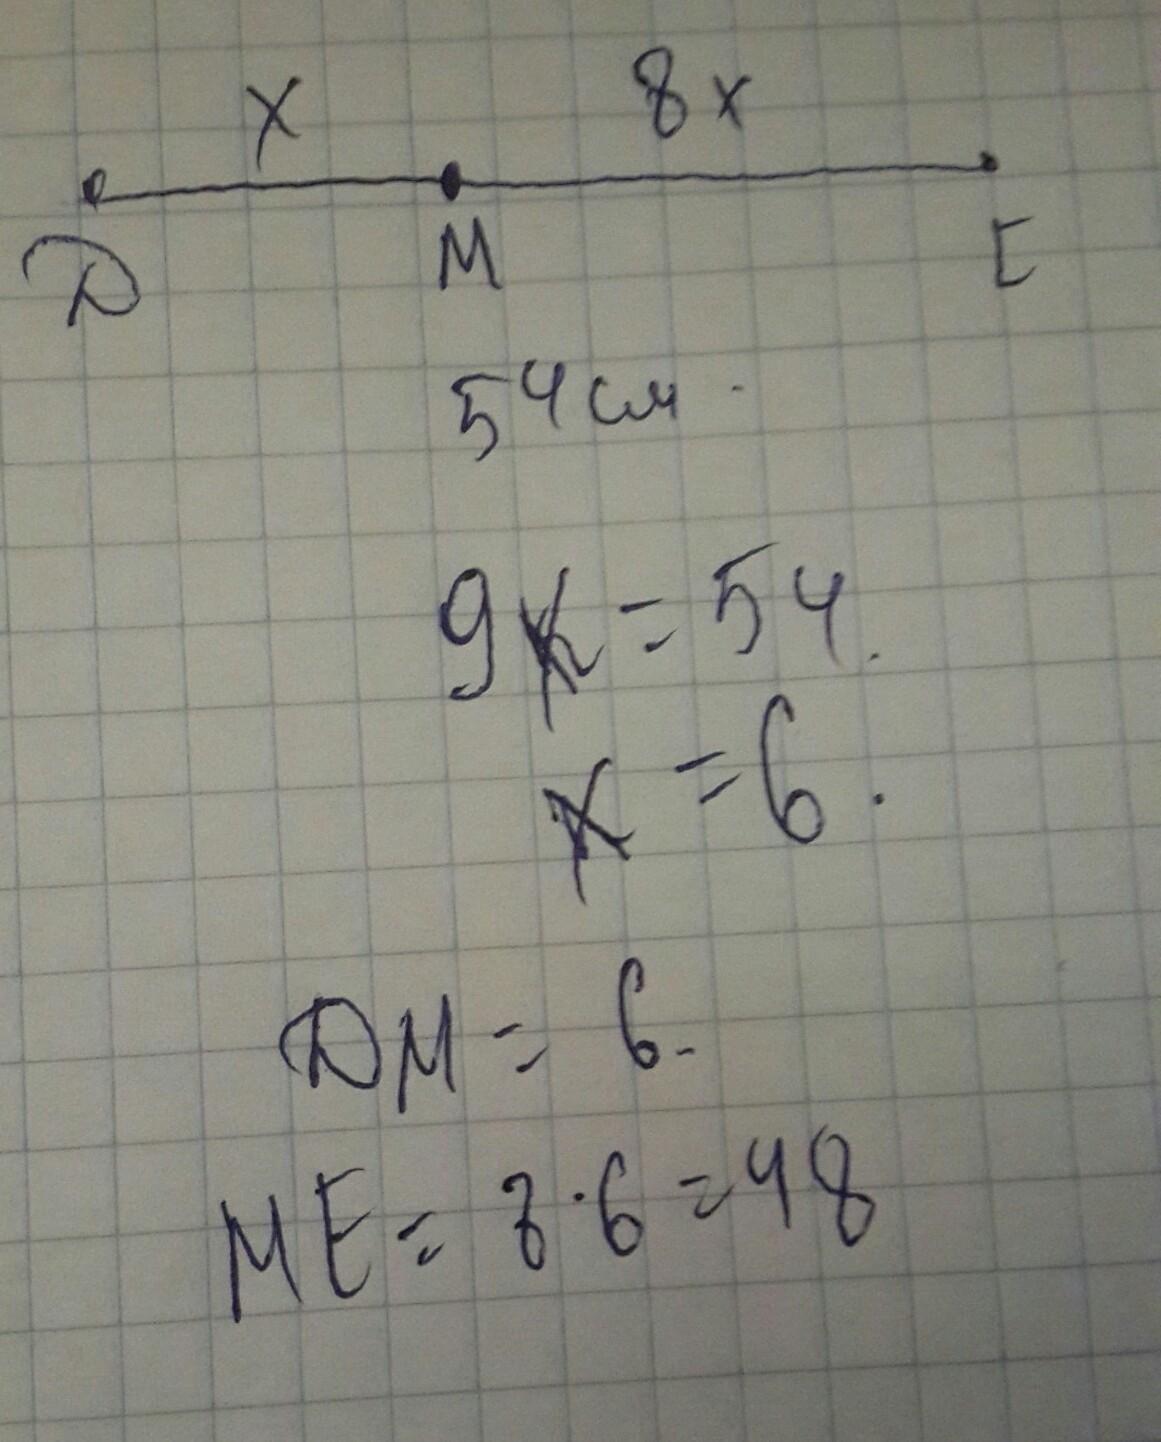 x 8x
D M E
54 см.
9x = 54.
x = 6.
DM = 6.
ME = 8·6 = 48